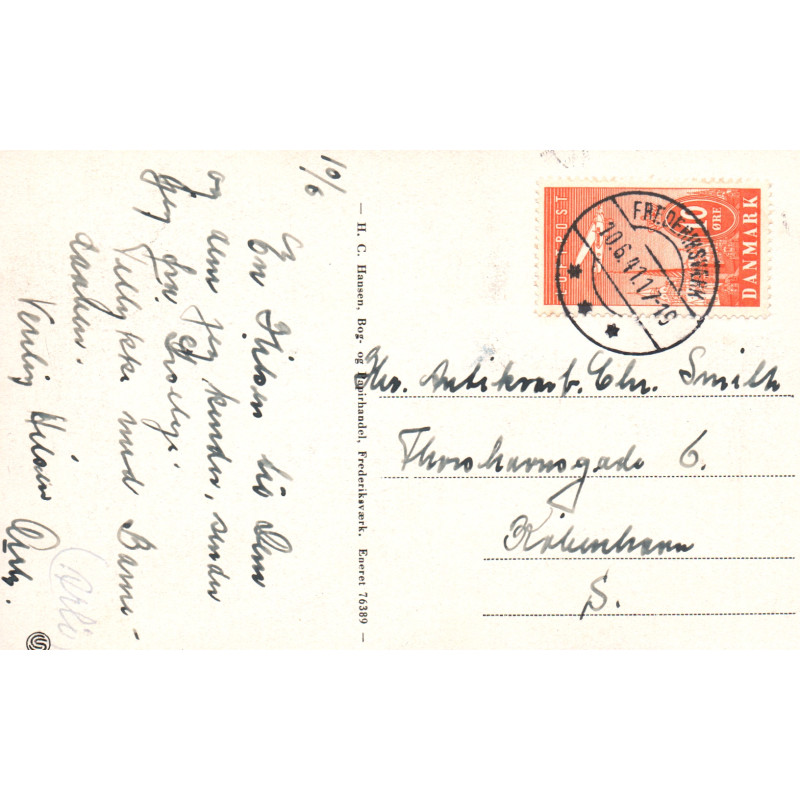 10/6
En Hilsen til Dem
og dem jeg kender, sender
jeg fra
Tillykke med Barne-
daaben.
Venlig Hilsen
— H. C. Hansen, Bog- og Papirhandel, Frederiksværk. Eneret 76389 —
LUFTPOST
10
ØRE
DANMARK
FREDERIKSVÆRK
10.6.41.17-19
Hr. Antikvarb. Chr. Smith
Thorshavnsgade 6.
København
S.